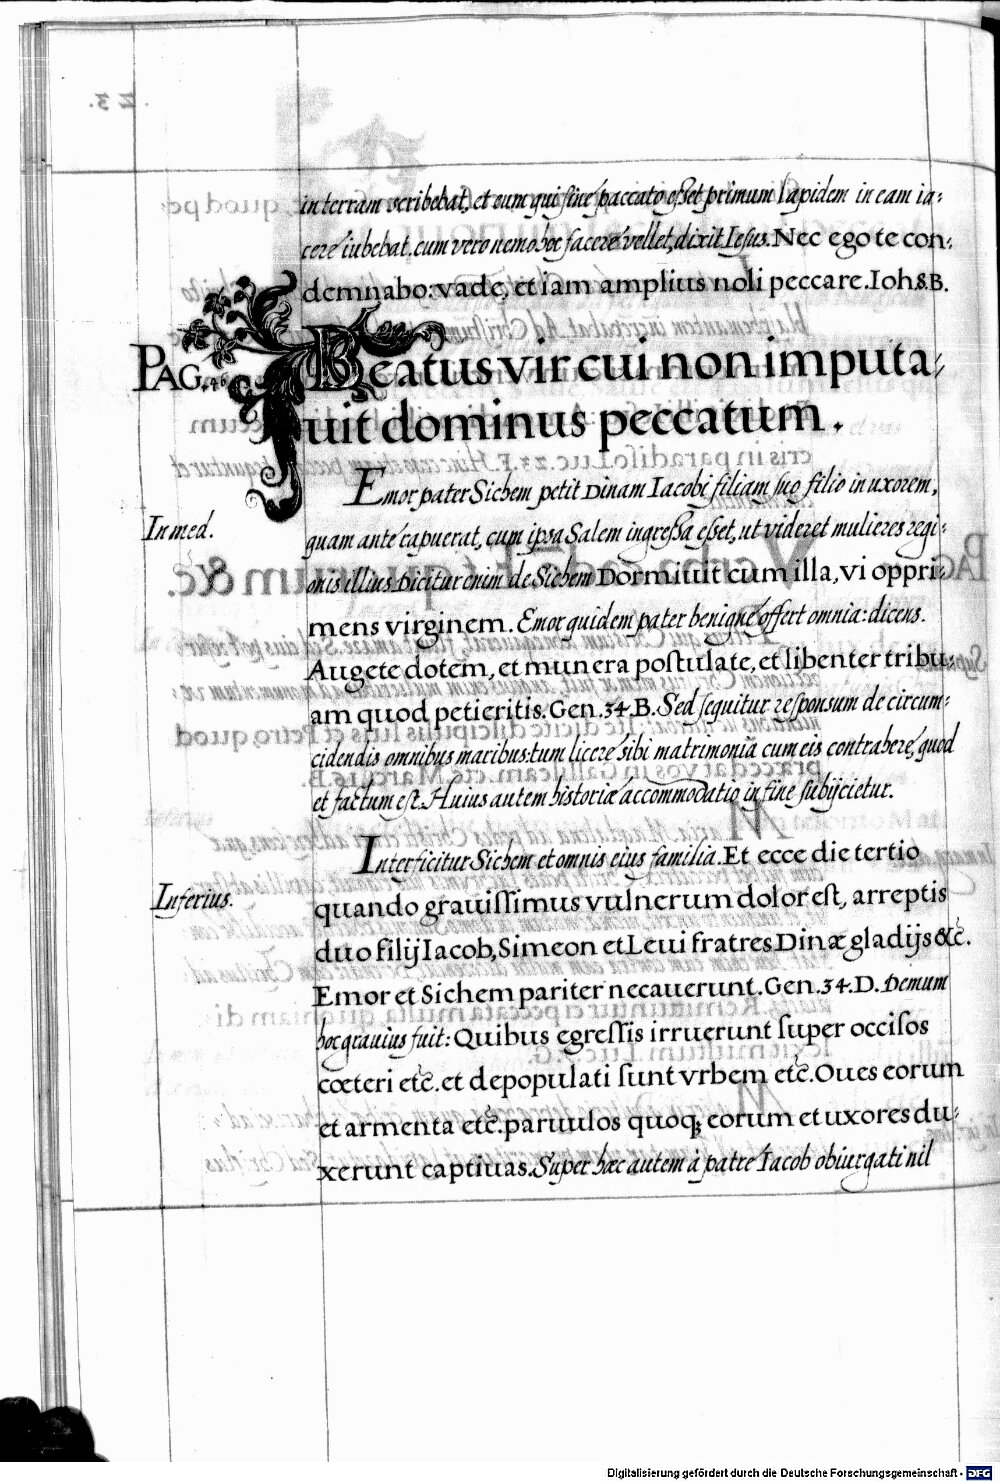 in terram scribebat, et eum qui sine peccato esset primum lapidem in eam ia-
cere iubebat. cum vero nemo hoc facere vellet, dixit Iesus. Nec ego te con-
demnabo: vade, et iam amplius noli peccare. Ioh 8. B.
PAG. 46.
Beatus vir cui non imputa-
uit dominus peccatum.
Emor pater Sichem petit Dinam Iacobi filiam suo filio in uxorem,
In med.
quam ante rapuerat, cum ipsa Salem ingressa esset, ut videret mulieres regi-
onis illius Dicitur enim de Sichem Dormiuit cum illa, vi oppri-
mens virginem. Emor quidem pater benigne offert omnia: dicens.
Augete dotem, et munera postulate, et libenter tribu-
am quod petieritis. Gen. 34. B. Sed sequitur responsum de circum-
cidendis omnibus maribus: tum licere sibi matrimoniā cum eis contrahere, quod
et factum est. Huius autem historiæ accommodatio in fine subijcietur.
Interficitur Sichem et omnis eius familia. Et ecce die tertio
Inferius.
quando grauissimus vulnerum dolor est, arreptis
duo filij Iacob, Simeon et Leui fratres Dinæ gladijs &c̃.
Emor et Sichem pariter necauerunt. Gen. 34. D. Demum
hoc grauius fuit: Quibus egressis irruerunt super occisos
cœteri etc̃. et depopulati sunt vrbem etc̃. Oues eorum
et armenta etc̃. paruulos quoqꝫ eorum et uxores du-
xerunt captiuas. Super hæc autem à patre Iacob obiurgati nil
Digitalisierung gefördert durch die Deutsche Forschungsgemeinschaft - DFG